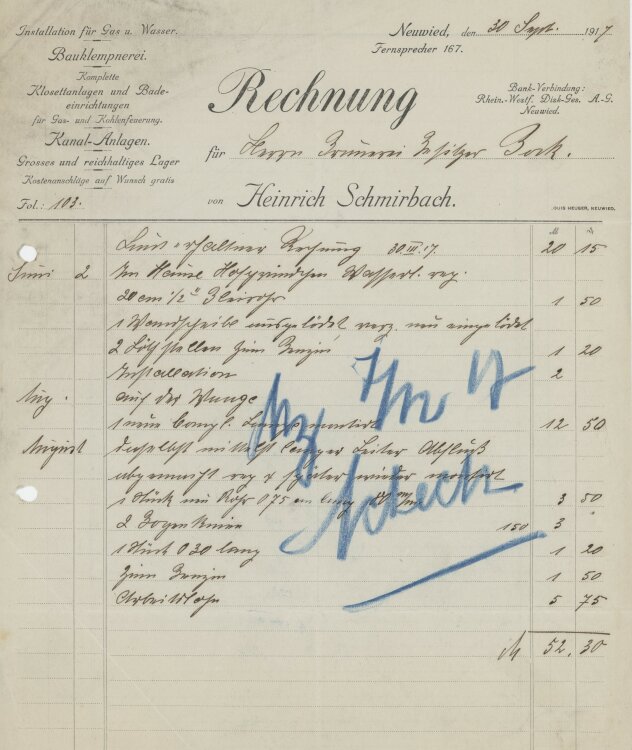 Installation für Gas u. Wasser.
Bauklempnerei.
Komplette
Klosettanlagen und Bade-
einrichtungen
für Gas- und Kohlenfeuerung.
Kanal-Anlagen.
Grosses und reichhaltiges Lager
Kostenanschläge auf Wunsch gratis
Fol.: 103.
Neuwied, den 30 Sept. 1917
Fernsprecher 167.
Bank-Verbindung:
Rhein.-Westf. Disk-Ges. A.-G.
Neuwied.
Rechnung
für Herrn Brauerei Besitzer Bock.
von Heinrich Schmirbach.
LOUIS HEUSER, NEUWIED.
M
Laut erhaltner Rechnung 30 III 17. 20 15
Juni 2 Im Hause Wasserl. rep.
20 cm 1/2" Bleirohr 1 50
1 Wandscheibe ausgelötet neu eingelötet
2 Lötstellen Zinn Benzin 1 20
Installation 2
Aug. auf der
1 neue compl. montiert 12 50
August daselbst mittelst langer Leiter Abfluß
abgemacht rep & später wieder montiert
1 Stück neu Rohr 0 75 cm lang 3 50
2 Bogen 150 3
1 Stück 0 30 lang 1 20
Zinn Benzin 1 50
Arbeitslohn 5 75
M 52.30
17
Scheck